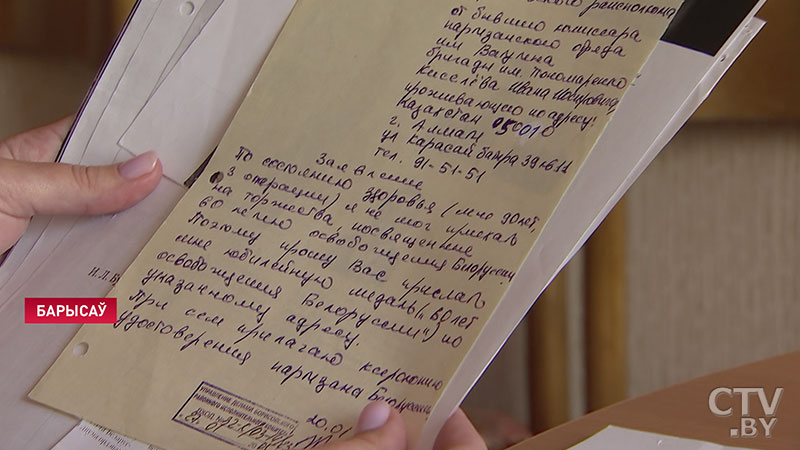 райисполкома
от бывшего комиссара
партизанского отряда
им. Ващина
бригады им. Пономаренко
Киселёва Ивана
проживающего по адресу:
Казахстан 050010
г. Алматы
ул. Карасай батыра 39 кв 11
тел. 91-51-51
Заявление
По состоянию здоровья (мне 90 лет,
3 операции) я не мог приехать
на торжества, посвященные
60 летию освобождения Белоруссии.
Поэтому прошу Вас прислать
мне юбилейную медаль („60 лет
освобождения Белоруссии") по
указанному адресу.
При сем прилагаю ксерокопию
удостоверения партизана Белоруссии
20.01
УПРАВЛЕНИЕ ДЕЛАМИ БОРИСОВСКОГО
РАЙОННОГО ИСПОЛНИТЕЛЬНОГО КОМИТЕТА
Н.Л.
БАРЫСАЎ
CTV
.BY